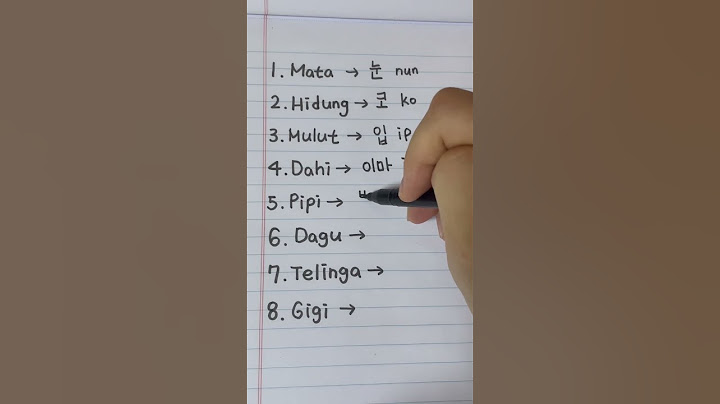 1. Mata → 눈 nun
2. Hidung → 코 ko
3. Mulut → 입 ip
4. Dahi → 이마
5. Pipi →
6. Dagu →
7. Telinga →
8. Gigi →